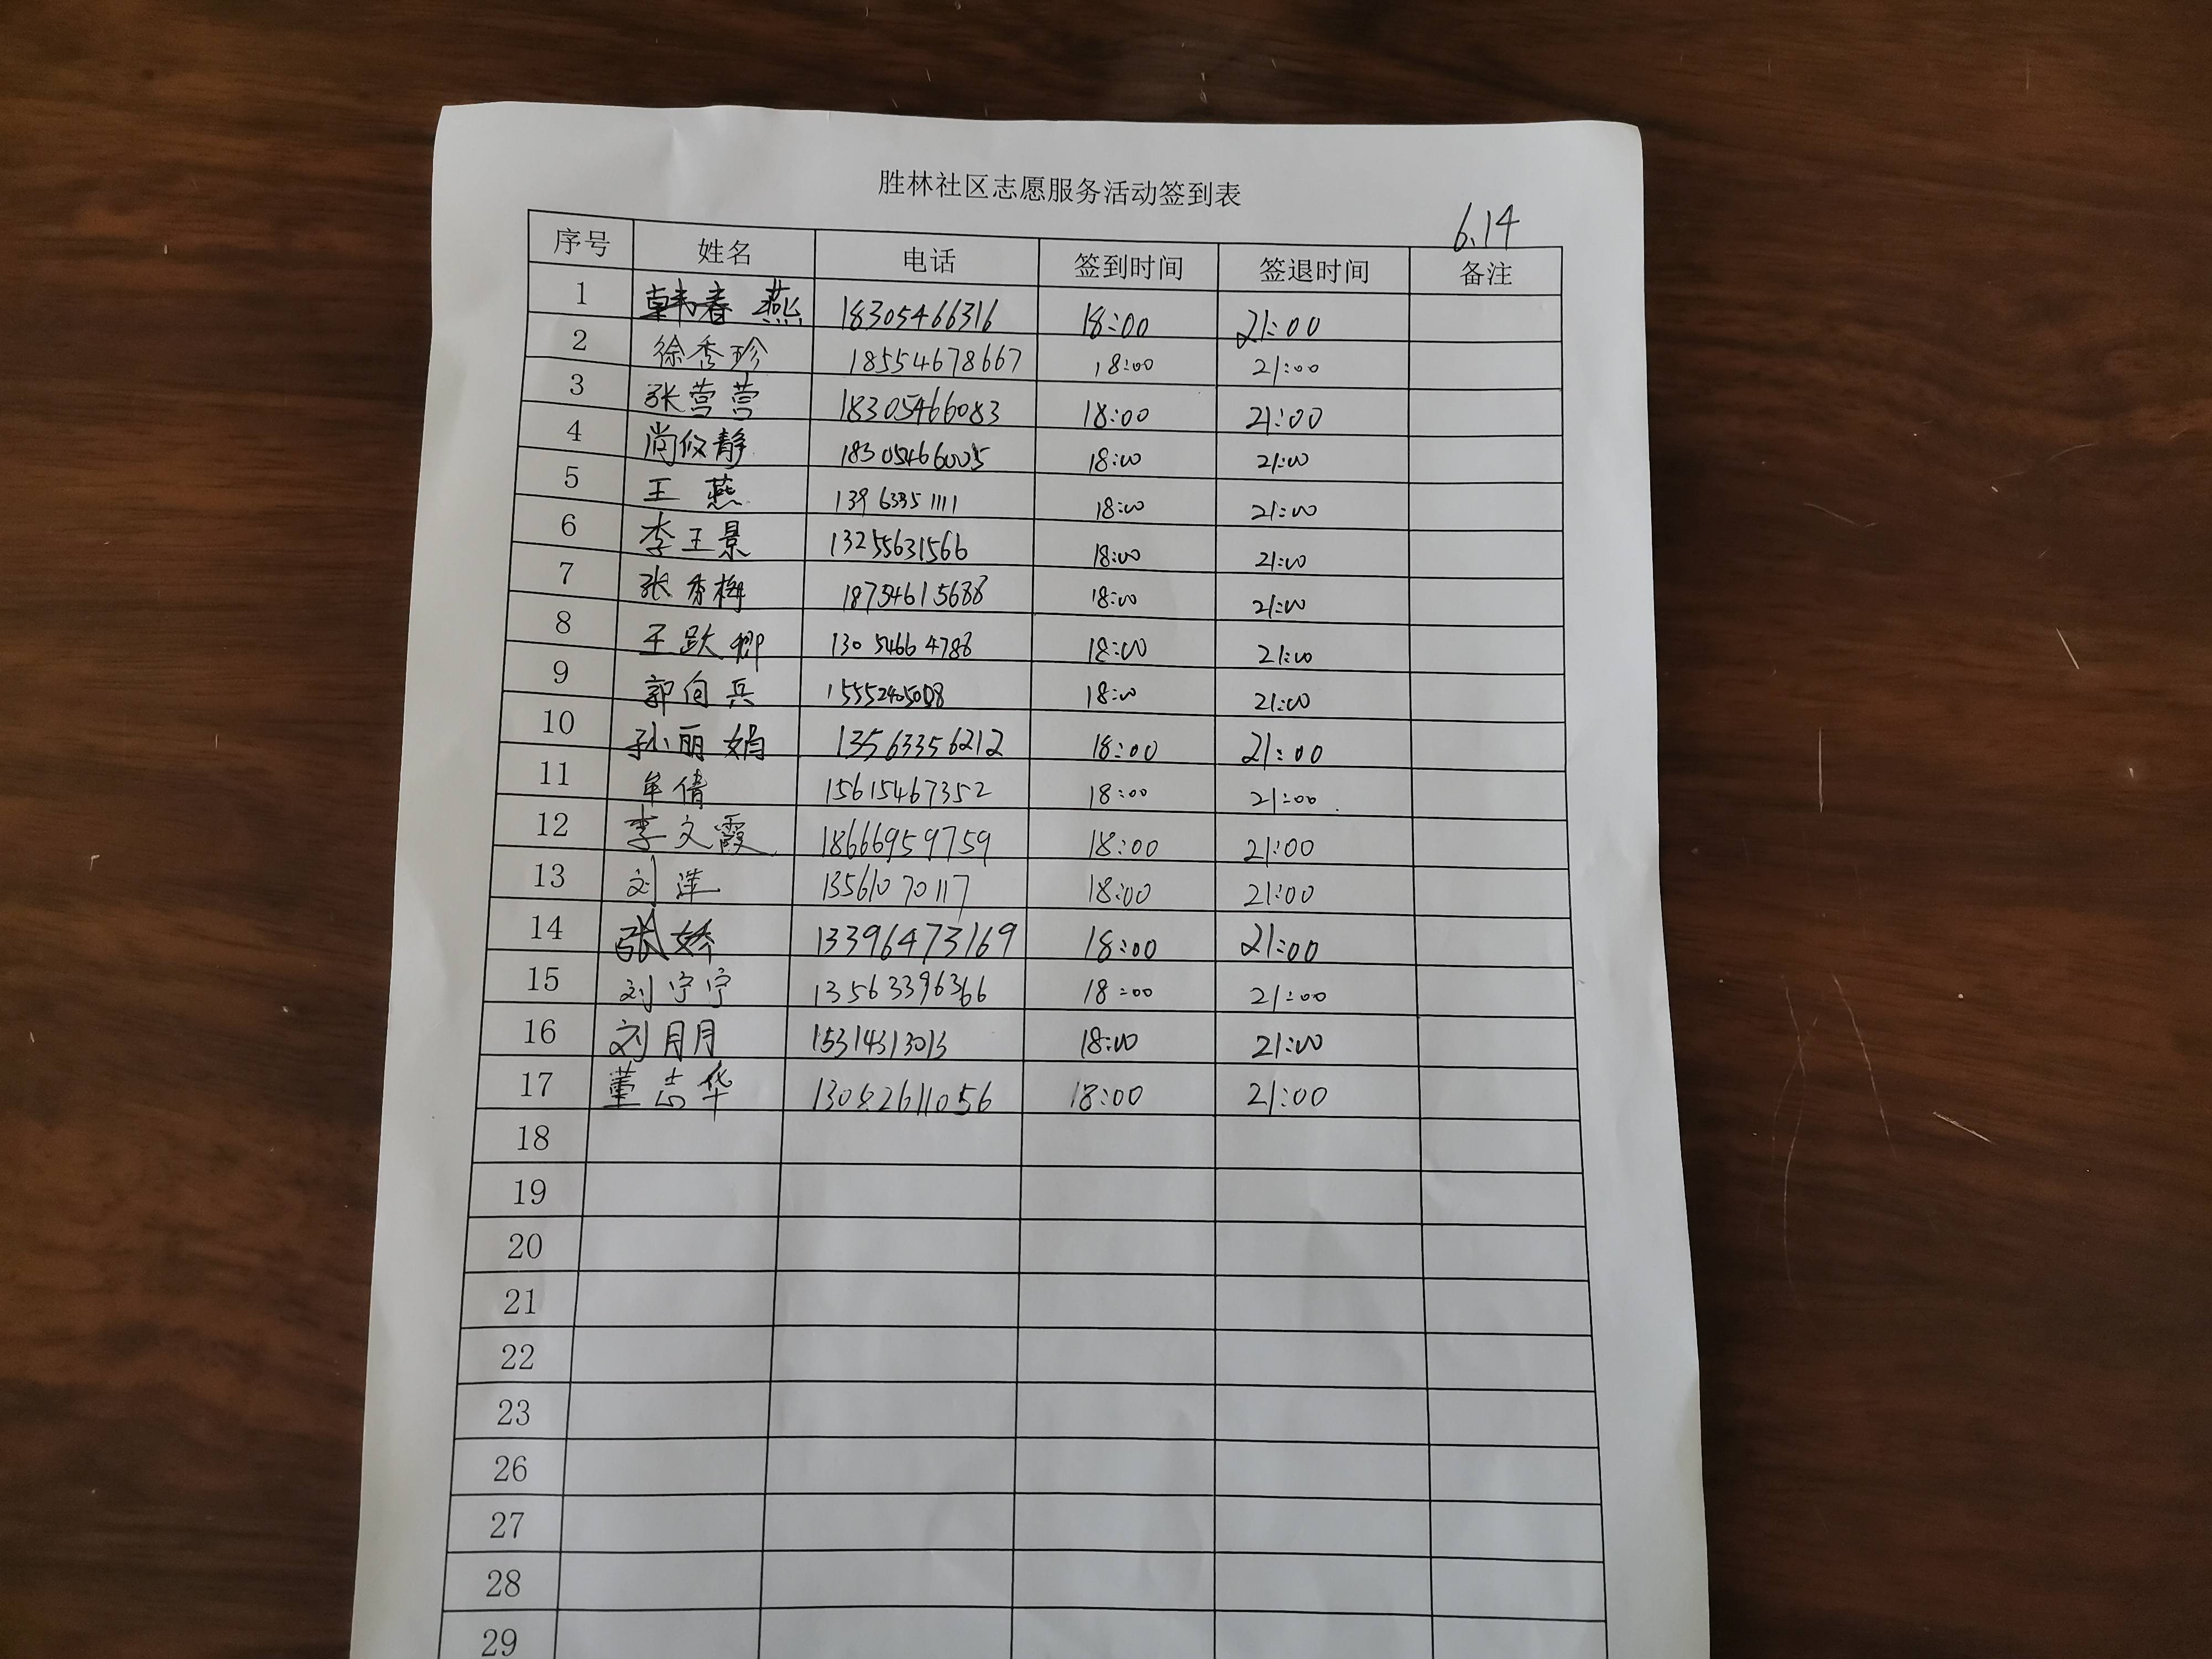 胜林社区志愿服务活动签到表
6.14
序号 姓名 电话 签到时间 签退时间 备注
1 韩春燕 18305466316 18:00 21:00
2 徐秀珍 18554678667 18:00 21:00
3 张营营 18305466083 18:00 21:00
4 尚俊静 18305466005 18:00 21:00
5 王燕 13963351111 18:00 21:00
6 李王景 13255631566 18:00 21:00
7 张秀梅 18754615688 18:00 21:00
8 王跃卿 13054664788 18:00 21:00
9 郭向兵 18:00 21:00
10 孙丽娟 13563356212 18:00 21:00
11 牟倩 15615467352 18:00 21:00
12 李文霞 18666959759 18:00 21:00
13 刘萍 13561070117 18:00 21:00
14 张娇 13396473169 18:00 21:00
15 刘宁宁 13563396366 18:00 21:00
16 刘月月 15314313013 18:00 21:00
17 董志华 18:00 21:00
18
19
20
21
22
23
26
27
28
29